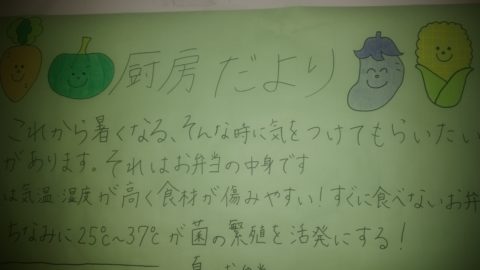 厨房だより
これから暑くなる、そんな時に気をつけてもらいたい
があります。それはお弁当の中身です
は気温・湿度が高く食材が傷みやすい！すぐに食べないお弁
ちなみに25℃~37℃が菌の繁殖を活発にする！